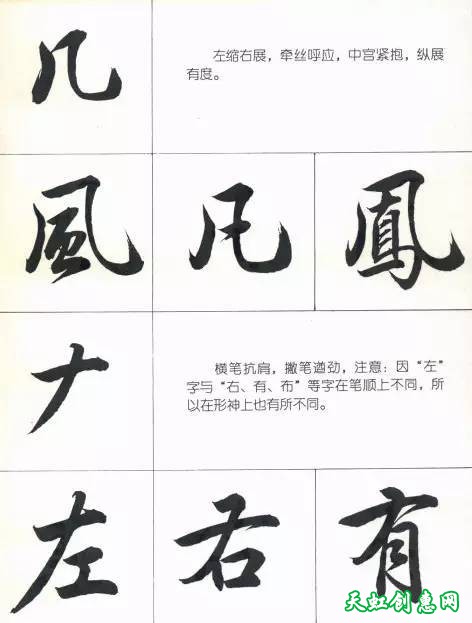 几
左缩右展，牵丝呼应，中宫紧抱，纵展
有度。
風 凡 鳳
𠂇
横笔抗肩，撇笔遒劲，注意：因“左”
字与“右、有、布”等字在笔顺上不同，所
以在形神上也有所不同。
左 右 有
天虹创意网